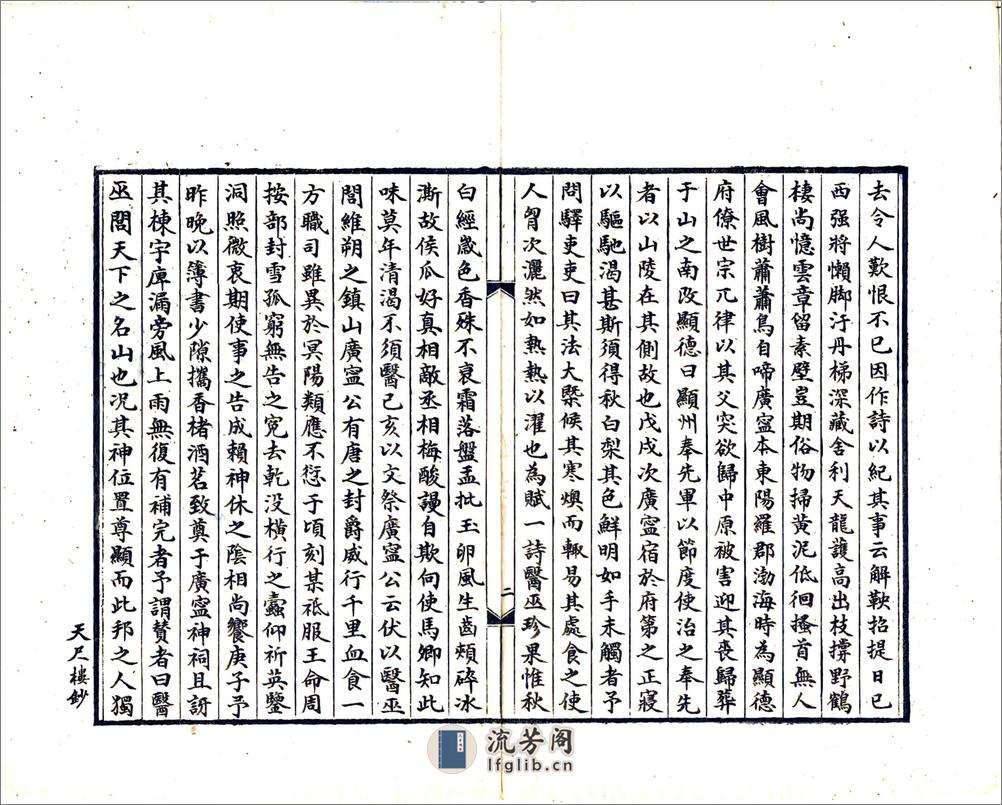 去令人歎恨不已因作詩以紀其事云解鞅招提日已
西强將懶脚汙丹梯深藏舍利天龍護高出枝撐野鶴
棲尚憶雲章留素壁豈期俗物掃黃泥低徊搔首無人
會風樹蕭蕭鳥自啼廣寍本東陽羅郡渤海時為顯德
府僚世宗兀律以其父突欲歸中原被害迎其喪歸葬
于山之南改顯德曰顯州奉先軍以節度使治之奉先
者以山陵在其側故也戊戌次廣寍宿於府第之正寢
以驅馳渴甚斯須得秋白梨其色鮮明如手未觸者予
問驛吏吏曰其法大槩候其寒燠而輙易其處食之使
人胷次灑然如執熱以濯也為賦一詩醫巫珍果惟秋
白經歲色香殊不衰霜落盤盂批玉卵風生齒頰碎冰
澌故侯瓜好真相敵丞相梅酸謾自欺向使馬卿知此
味莫年清渴不須醫己亥以文祭廣寍公云伏以醫巫
閭維朔之鎮山廣寍公有唐之封爵威行千里血食一
方職司雖異於冥陽類應不愆于頃刻某祗服王命周
按部封雪孤窮無告之寃去乾没横行之蠹仰祈英鑒
洞照微衷期使事之告成賴神休之陰相尚饗庚子予
昨晚以簿書少隙攜香楮酒茗致奠于廣寍神祠且訝
其棟宇庳漏旁風上雨無復有補完者予謂贊者曰醫
巫閭天下之名山也况其神位置尊顯而此邦之人獨
二
天尺樓鈔
流芳阁
lfglib.cn